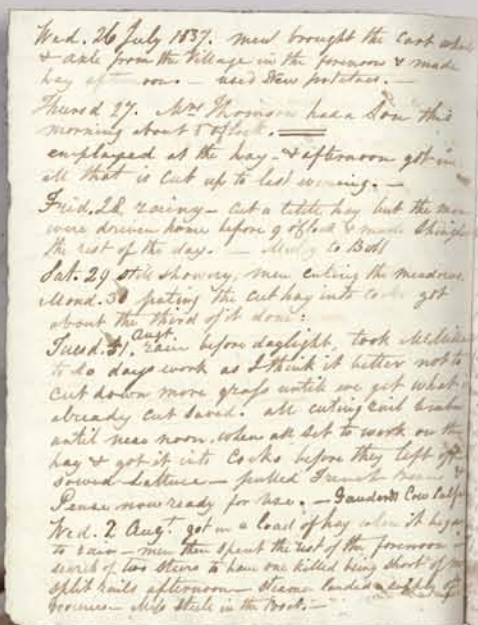 Wed. 26 July 1837. men brought the cart wheel
& axle from the Village in the forenoon & made
hay afternoon. - used New potatoes. -
Thursd 27. Mrs Thomson had a Son this
morning about 5 oClock.
employed at the hay - & afternoon got in
all that is cut up to last evening. -
Frid. 28 rainy - cut a little hay but the men
were driven home before 9 oClock & made Shingles
the rest of the day. - to Bull
Sat. 29 still showery, men cuting the meadow
Mond. 31 puting the cut hay into cocks got
about the third of it done:
Tuesd. 1 Augt. rain before daylight, took
to do days work as I think it better not to
cut down more grass until we get what is
already cut saved. all cuting rail timber
until near noon, when all set to work on the
hay & got it into Cocks before they left off
sowed Lettuce - pulled French Beans &
Pease now ready for use. - Cow Calfd
Wed. 2 Augt. got in a load of hay when it began
to rain - men then spent the rest of the forenoon in
search of two steers to have one killed being short of
split rails afternoon - Steamer landed a supply of
Groceries - Miss Steele in the Boat. -